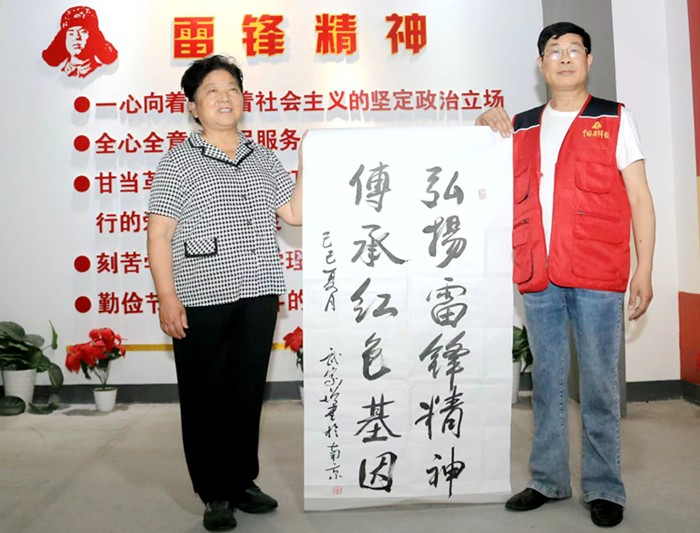 雷锋精神
一心向着 着社会主义的坚定政治立场
全心全意 民服务
甘当革
行的
刻苦 学理
勤俭节 的
弘揚雷锋精神
傳承红色基因
己巳夏月
書於南京